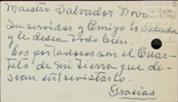 Maestro Salvador Novo.
Su servidor y Amigo lo Saluda
y le desea todo bien.
Los portadores son el Cuar-
teto de mi tierra que de-
sean entrevistarlo.
Gracias